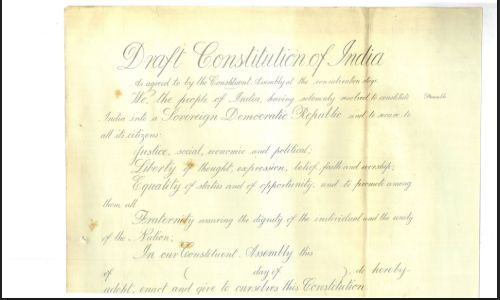 Draft Constitution of India
As agreed to by the Constituent Assembly at the consideration stage
We, the people of India, having solemnly resolved to constitute
Preamble
India into a Sovereign Democratic Republic and to secure to
all its citizens:
Justice, social, economic and political;
Liberty of thought, expression, belief, faith and worship;
Equality of status and of opportunity, and to promote among
them all
Fraternity assuring the dignity of the individual and the unity
of the Nation;
In our Constituent Assembly this
of ( day of ), do hereby
adopt, enact and give to ourselves this Constitution